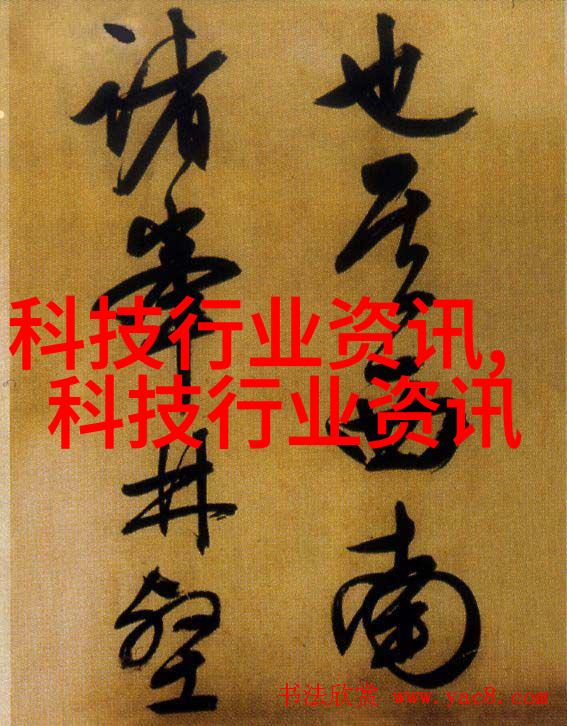 也其西南
諸峯林壑
科技行业资讯,
科技行业资讯
书法欣赏 www.yac8.com